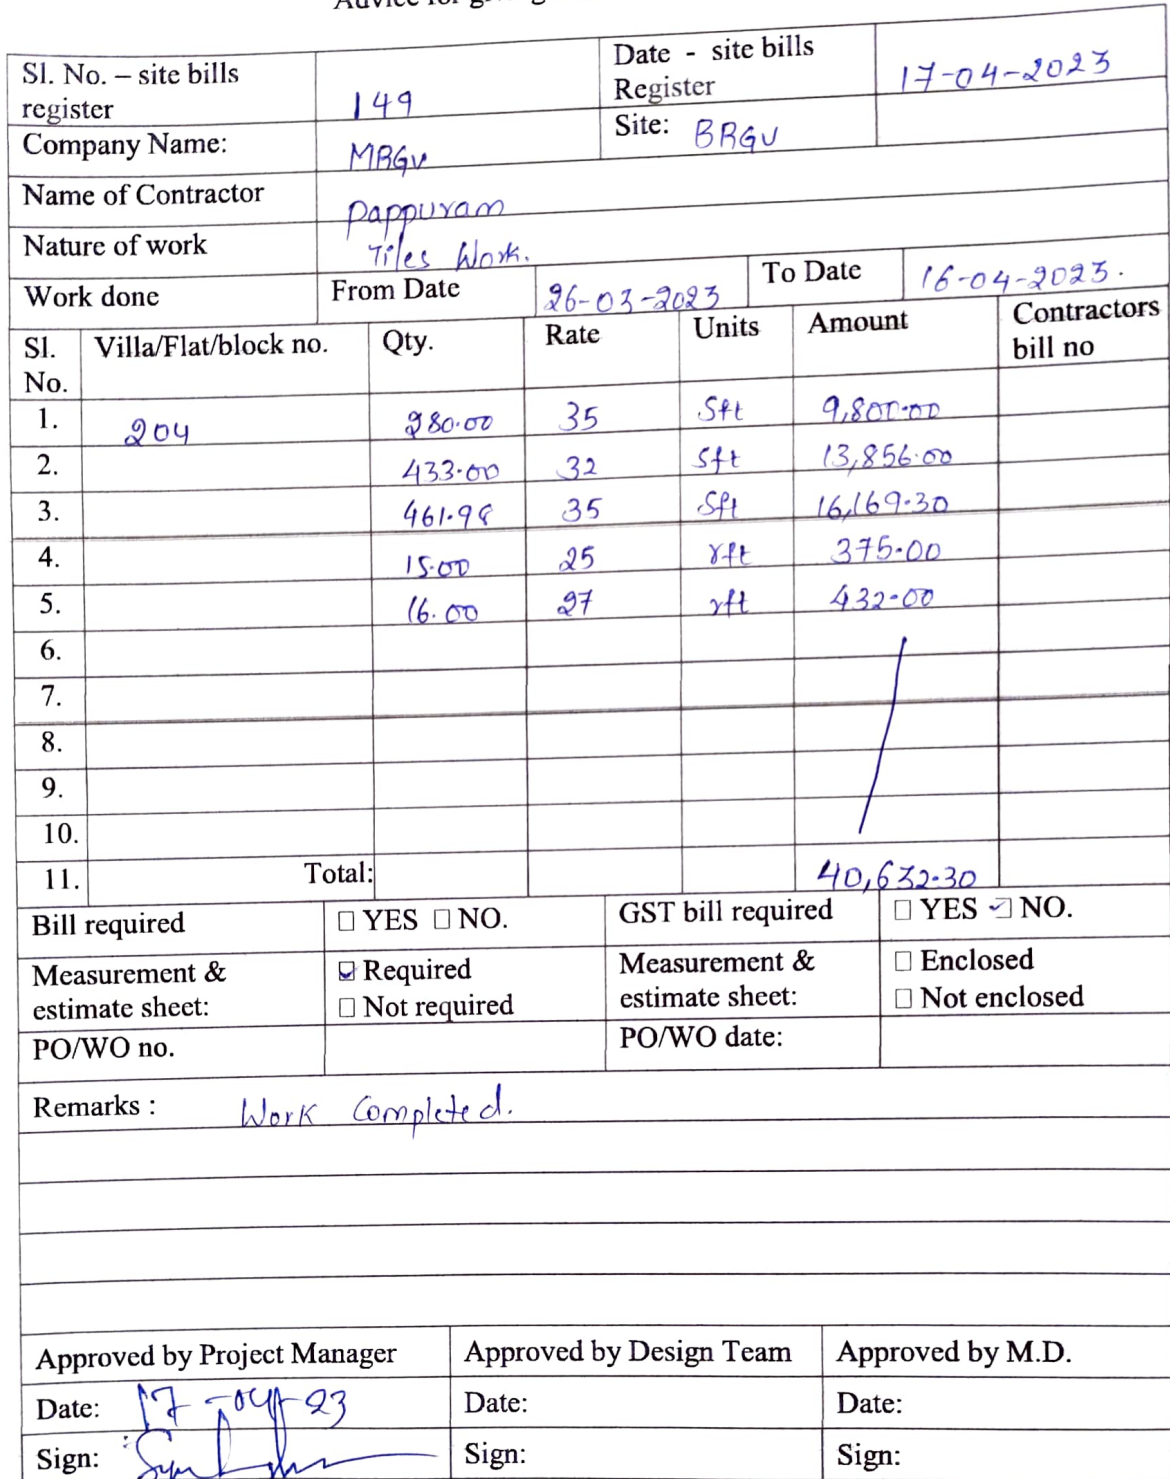 Advice for
Sl. No. – site bills register 149 Date - site bills Register 17-04-2023
Company Name: MRGV Site: BRGV
Name of Contractor Pappuram
Nature of work Tiles Work.
Work done From Date 26-03-2023 To Date 16-04-2023.
Sl. No. Villa/Flat/block no. Qty. Rate Units Amount Contractors bill no
1. 204 280.00 35 Sft 9,800.00
2. 433.00 32 Sft 13,856.00
3. 461.98 35 Sft 16,169.30
4. 15.00 25 rft 375.00
5. 16.00 27 rft 432.00
6.
7.
8.
9.
10.
11. Total: 40,632.30
Bill required □ YES □ NO. GST bill required □ YES ☑ NO.
Measurement & estimate sheet: ☑ Required □ Not required Measurement & estimate sheet: □ Enclosed □ Not enclosed
PO/WO no. PO/WO date:
Remarks : Work Completed.
Approved by Project Manager Approved by Design Team Approved by M.D.
Date: 17-04-23 Date: Date:
Sign: Sign: Sign: